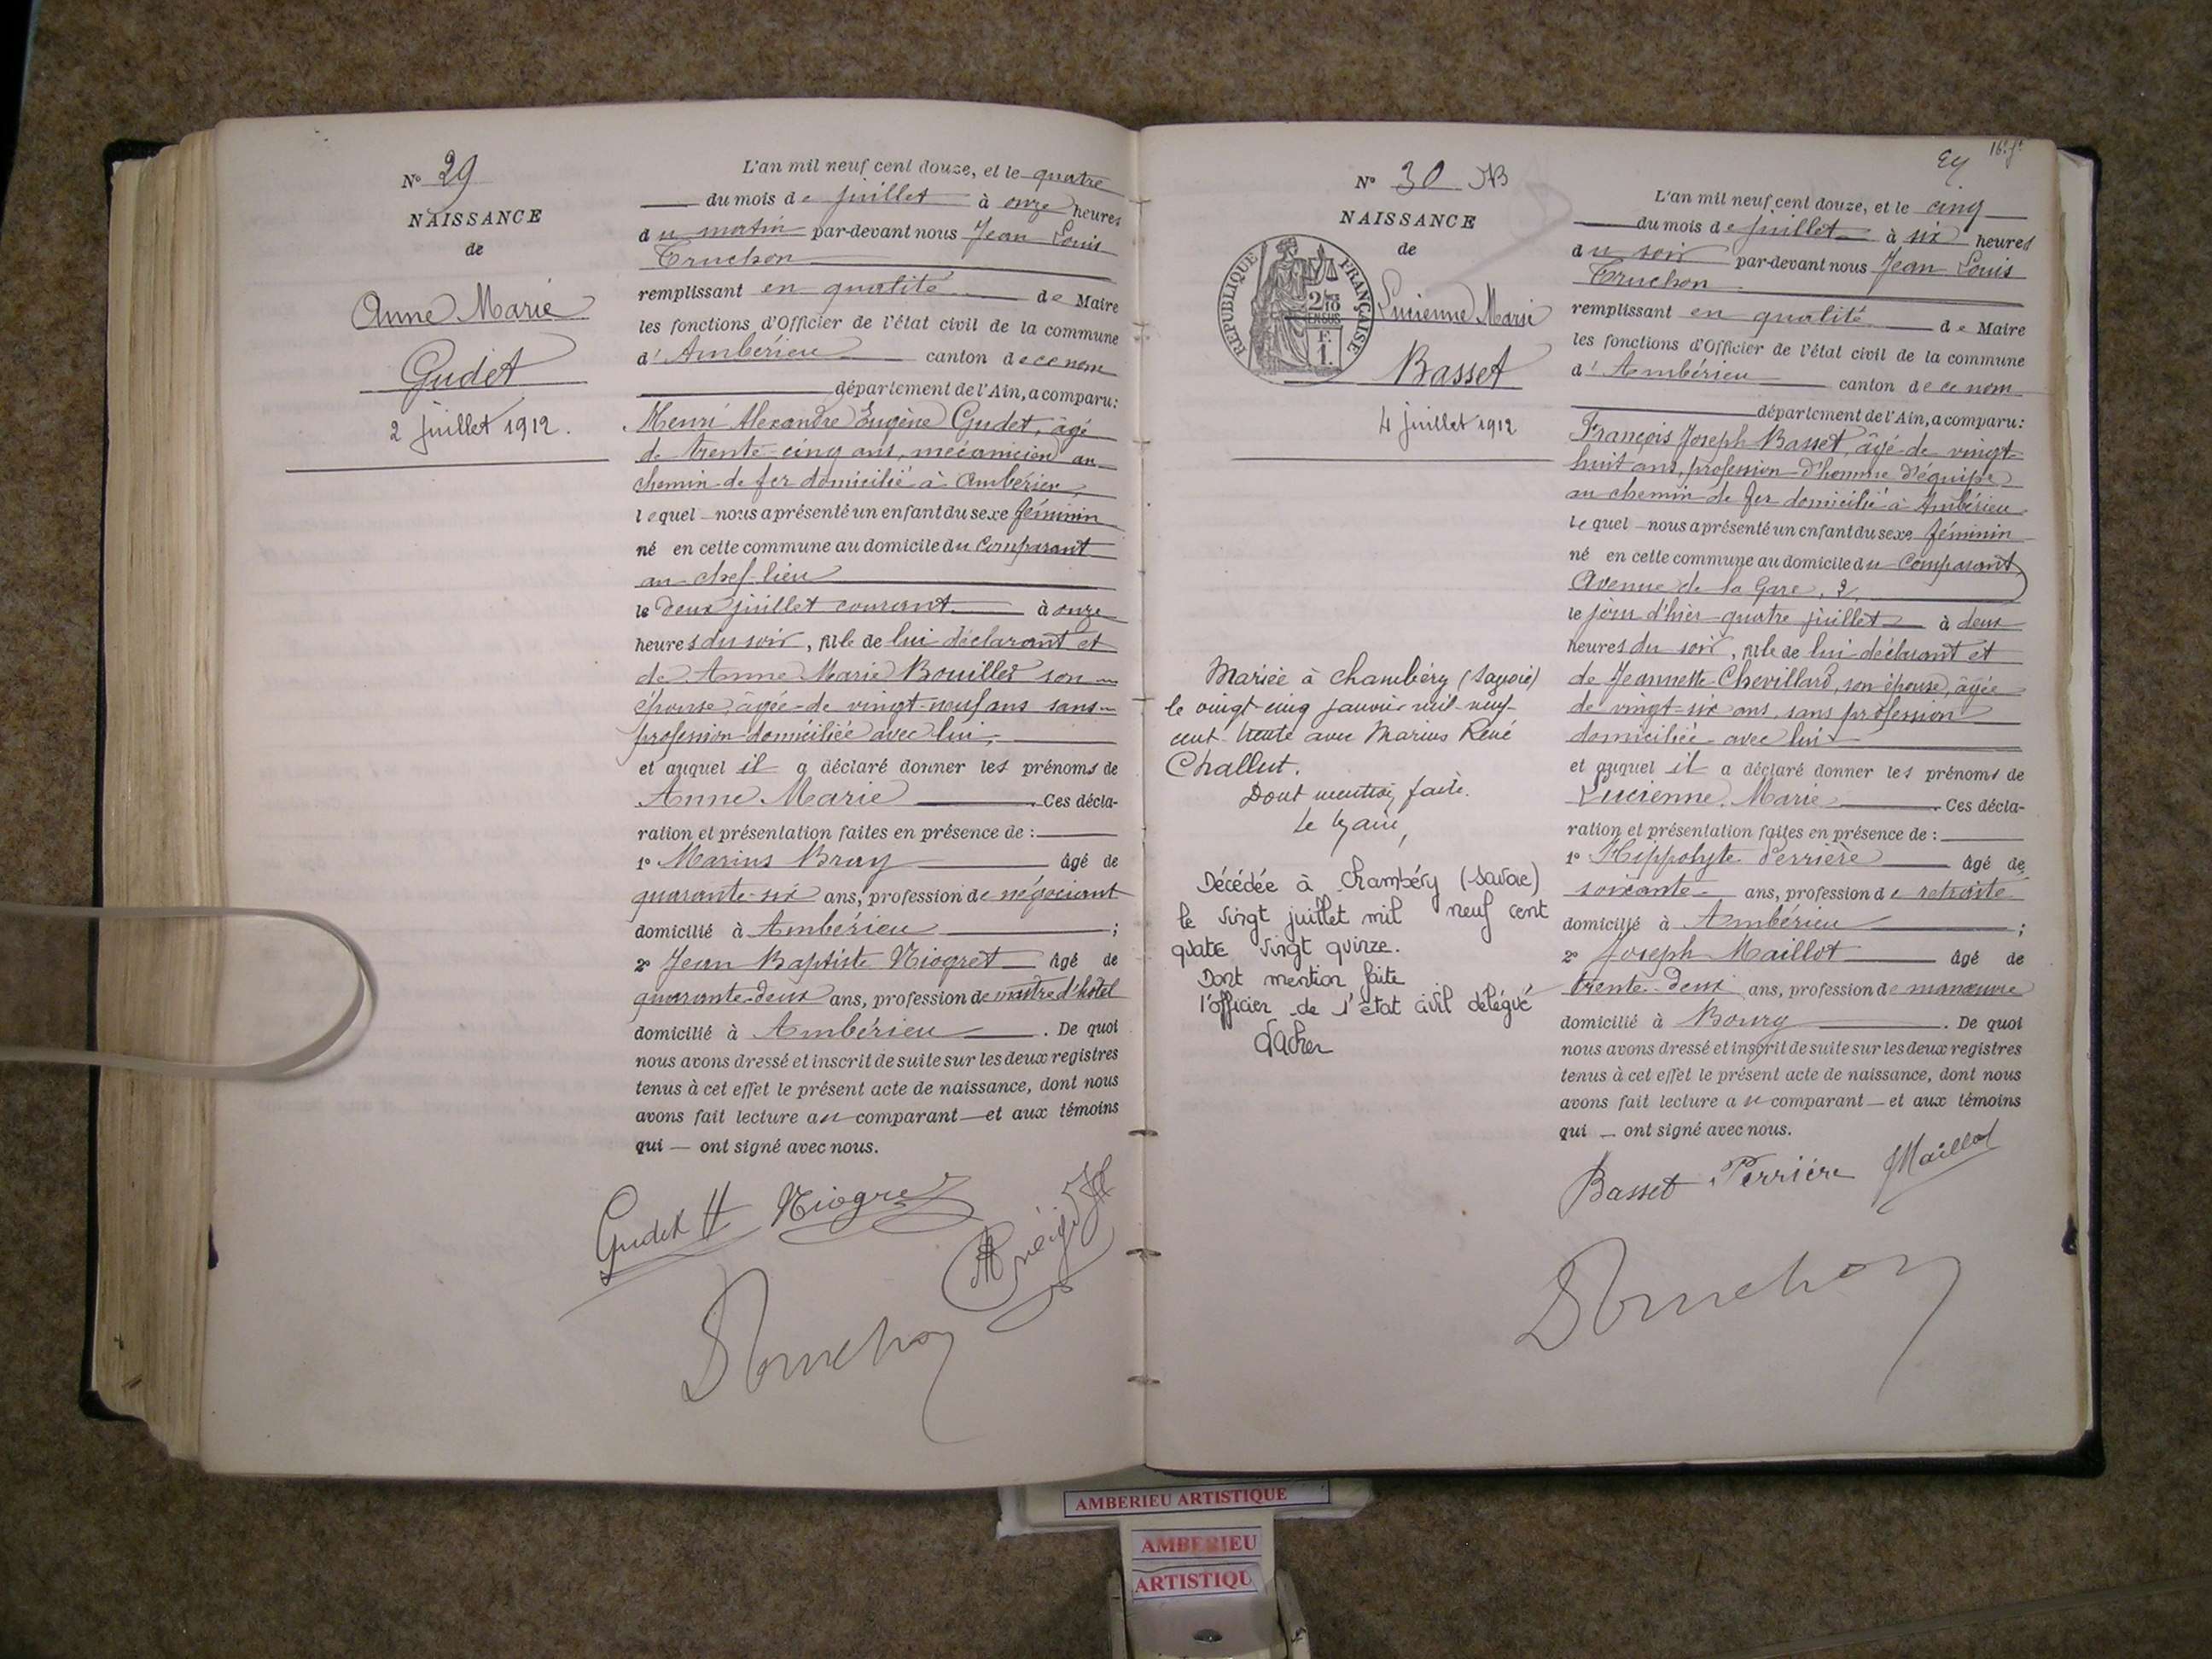 N° 29
NAISSANCE
de
Anne Marie
Gudet
2 juillet 1912.
L'an mil neuf cent douze, et le quatre
du mois de juillet à onze heures
du matin par-devant nous Jean Louis
Truchon
remplissant en qualité de Maire
les fonctions d'Officier de l'état civil de la commune
d'Ambérieu canton de ce nom
département de l'Ain, a comparu:
Henri Alexandre Eugène Gudet, âgé
de trente-cinq ans, mécanicien au
chemin de fer domicilié à Ambérieu,
lequel nous a présenté un enfant du sexe féminin
né en cette commune au domicile du comparant
au chef-lieu
le deux juillet courant à onze
heures du soir, fille de lui déclarant et
de Anne Marie Bouillet son
épouse, âgée de vingt-neuf ans sans
profession domiciliée avec lui,
et auquel il a déclaré donner les prénoms de
Anne Marie Ces décla-
ration et présentation faites en présence de :
1° Marius Bruy âgé de
quarante-six ans, profession de négociant
domicilié à Ambérieu ;
2° Jean Baptiste Niogret âgé de
quarante-deux ans, profession de maître d'hôtel
domicilié à Ambérieu . De quoi
nous avons dressé et inscrit de suite sur les deux registres
tenus à cet effet le présent acte de naissance, dont nous
avons fait lecture au comparant et aux témoins
qui — ont signé avec nous.
Gudet H Niogret
Truchon
16e ft
N° 30
NAISSANCE
de
REPUBLIQUE FRANÇAISE
Lucienne Marie
Basset
4 juillet 1912
Mariée à Chambéry (Savoie)
le vingt-cinq janvier mil-neuf-
cent-trente avec Marius René
Challut.
Dont mention faite.
Le Maire,
Décédée à Chambéry (Savoie)
le vingt juillet mil neuf cent
quatre vingt quinze.
Dont mention faite
l'officier de l'état civil délégué
L'an mil neuf cent douze, et le cinq
du mois de juillet à six heures
du soir par-devant nous Jean Louis
Truchon
remplissant en qualité de Maire
les fonctions d'Officier de l'état civil de la commune
d'Ambérieu canton de ce nom
département de l'Ain, a comparu:
François Joseph Basset, âgé de vingt-
huit ans, profession d'homme d'équipe
au chemin de fer domicilié à Ambérieu
lequel nous a présenté un enfant du sexe féminin
né en cette commune au domicile du comparant,
Avenue de la Gare, 2,
le jour d'hier quatre juillet à deux
heures du soir, fille de lui déclarant et
de Jeannette Chevillard, son épouse, âgée
de vingt-six ans, sans profession
domiciliée avec lui
et auquel il a déclaré donner les prénoms de
Lucienne Marie Ces décla-
ration et présentation faites en présence de :
1° Hippolyte Perrière âgé de
soixante ans, profession de retraité
domicilié à Ambérieu ;
2° Joseph Maillot âgé de
trente-deux ans, profession de manœuvre
domicilié à Bourg . De quoi
nous avons dressé et inscrit de suite sur les deux registres
tenus à cet effet le présent acte de naissance, dont nous
avons fait lecture au comparant — et aux témoins
qui — ont signé avec nous.
Basset Perrière JMaillot
Truchon
AMBERIEU ARTISTIQUE
AMBERIEU
ARTISTIQU